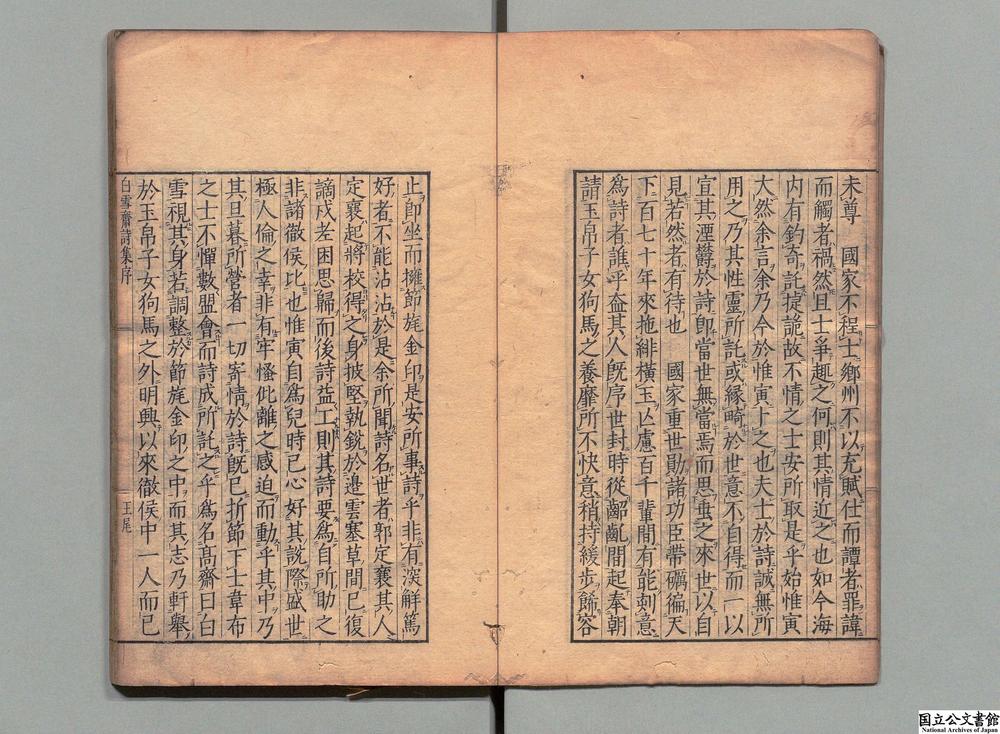 未尊　國家不程士鄉州不以充賦仕而譚者罪諱
而觸者禍然且士爭趣之何則其情近之也如今海
内有鈞奇託捷詭故不情之士安所取是乎始惟寅
大然余言余乃今於惟寅十之也夫士於詩誠無所
用之乃其性靈所託或緣畸於世意不自得而一以
宣其湮欝於詩卽當世無當焉而思垂之來世以自
見若然者有待也　國家重世勛諸功臣帶礪徧天
下百七十年來拖緋橫玉亡慮百千輩間有能刻意
爲詩者誰乎盍其人旣序世封時從齠齔間起奉朝
請玉帛子女狗馬之養靡所不快意稍持緩步餙容
止卽坐而擁節旄金印是安所事詩乎非有深解篤
好者不能沾沾於是余所聞詩名世者郭定襄其人
定襄起將校得之身披堅執銳於邊雲塞草間巳復
謫戍差困思歸而後詩益工則其詩要爲自所助之
非諸徹侯比也惟寅自爲兒時已心好其說際盛世
極人倫之幸非有牢愮仳離之感迫而動乎其中乃
其旦暮所營者一切寄情於詩旣已折節下士韋布
之士不憚數盟會而詩成所託之乎爲名髙齋曰白
雪視其身若調整於節旄金印之中而其志乃軒舉
於玉帛子女狗馬之外明興以來徹侯中一人而已
白雪齋詩集序
王尾
国立公文書館
National Archives of Japan